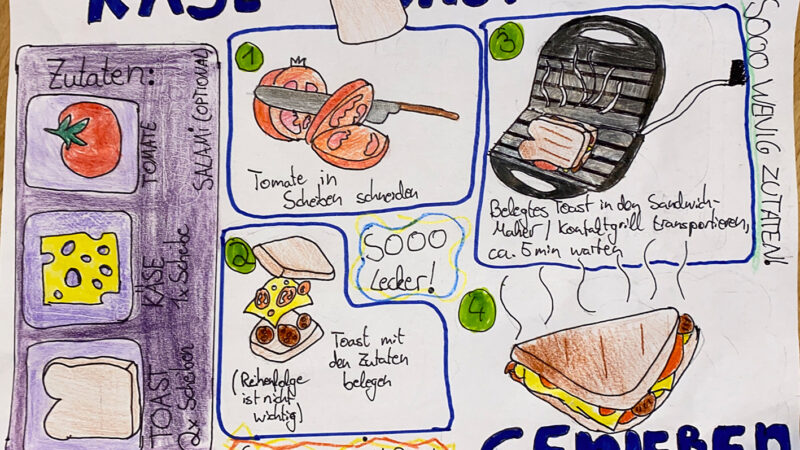 KÄSE
Zutaten:
TOMATE
SALAMI (OPTIONAL)
KÄSE
1x Scheibe
TOAST
2x Scheiben
1
Tomate in
Scheiben schneiden
2
(Reihenfolge
ist nicht
wichtig)
Toast mit
den Zutaten
belegen
SOOO
Lecker!
3
Belegtes Toast in den Sandwich-
Maker / Kontaktgrill transportieren,
ca. 5 min warten
SOOO WENIG ZUTATEN!
4
GENIEßEN